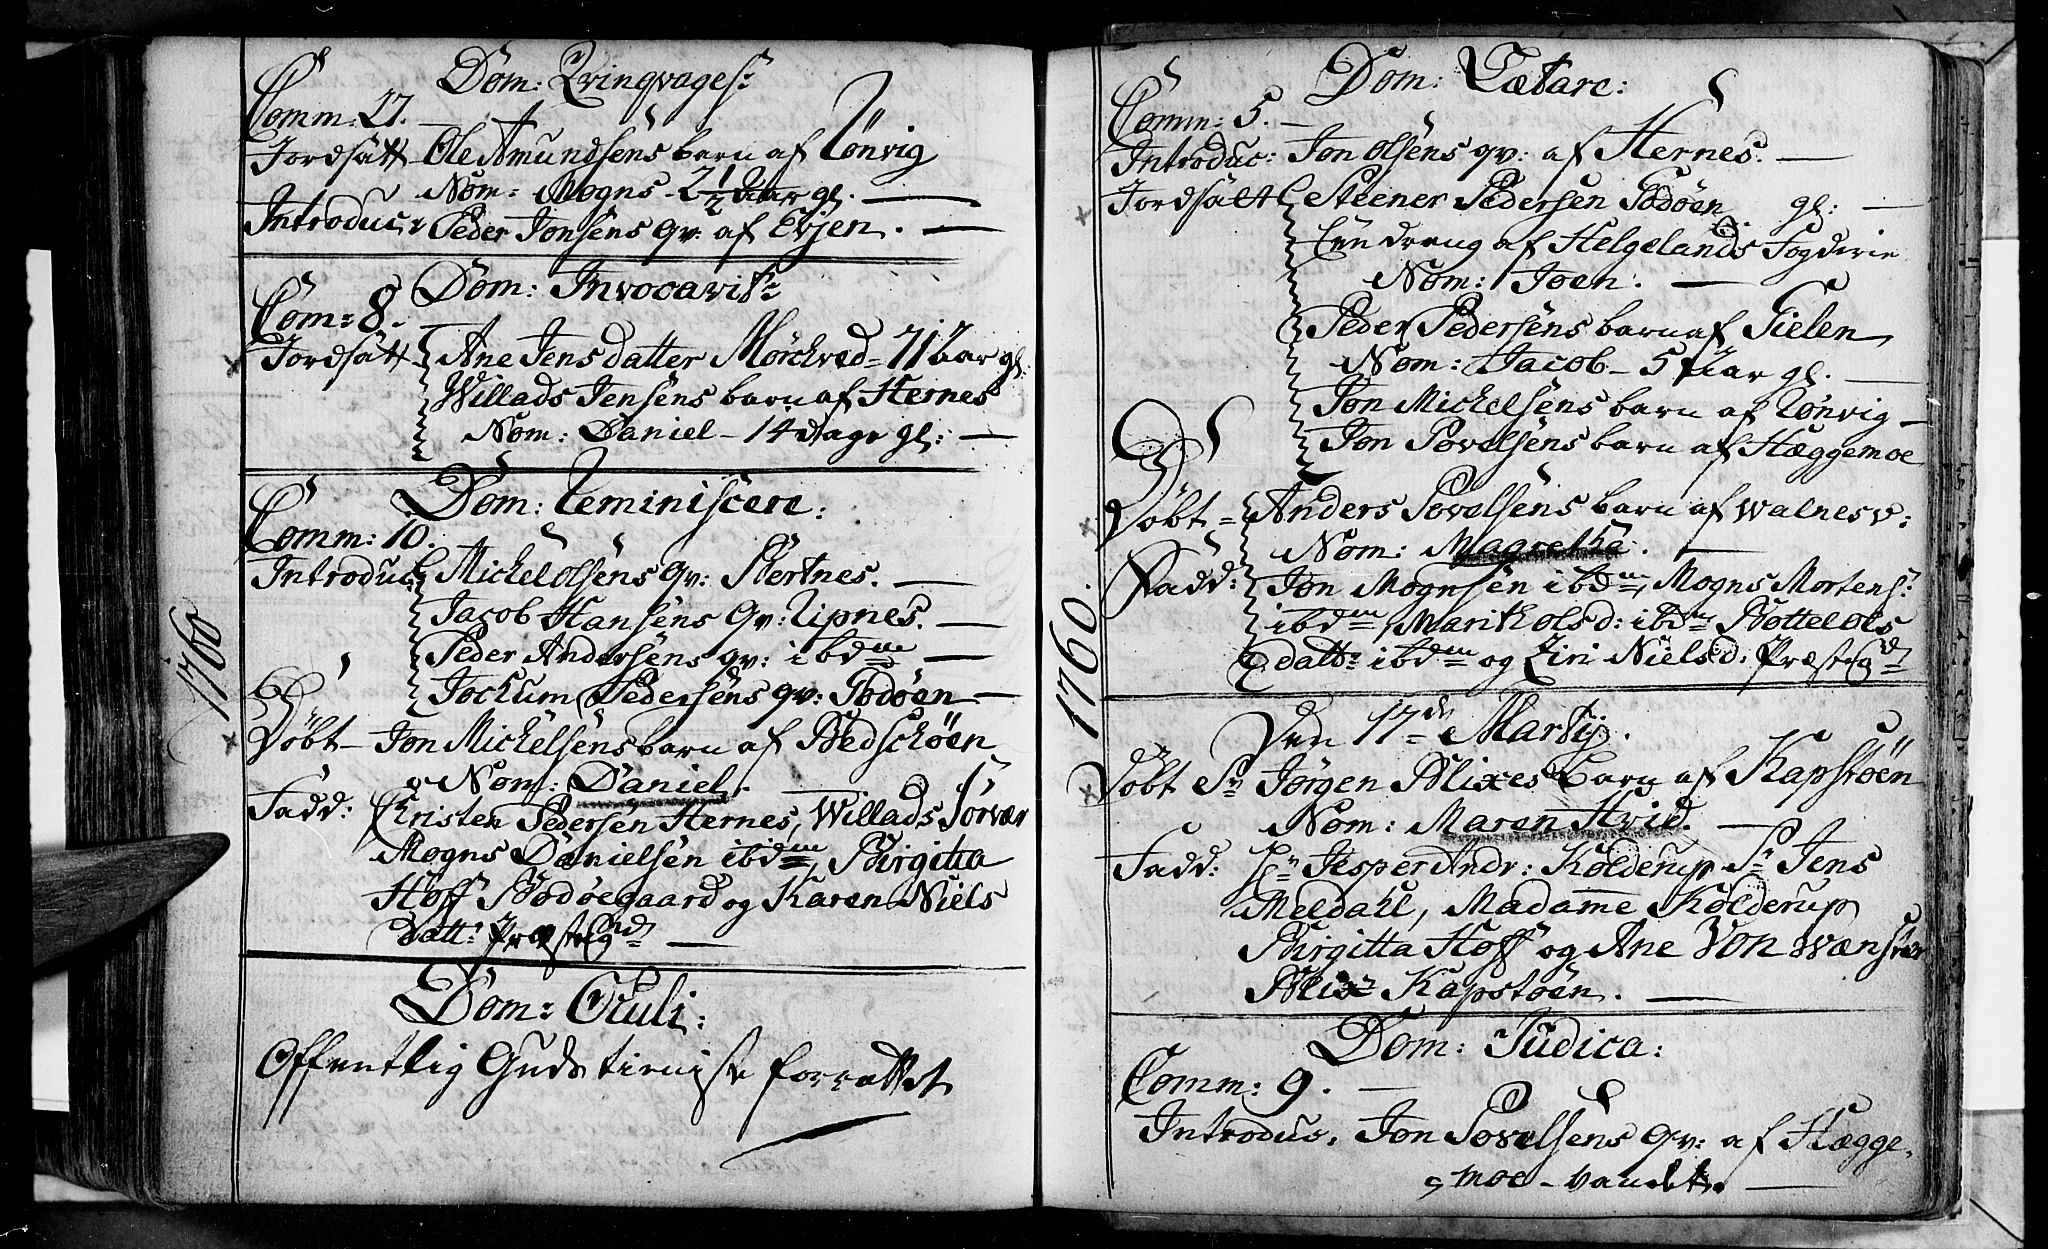 1760
Dom: Qvinqvages:
Comm: 27.
Jordsatt Ole Amundsens barn af Rönvig
Nom: Mogns - 2 1/2 Aar gl. —
Introduc: Peder Jonsens qv: af Evjen. —
Dom: Invocavit:
Com: 8.
Jordsatt Ane Jensdatter Mørchved - 71 1/2 aar gl:
Willads Jensens barn af Hernes
Nom: Daniel - 14 dage gl: —
Dom: Reminiscere:
Comm: 10.
Introduc: Michel Olsens qv: Bertnes. —
Jacob Hansens qv: Ripnes. —
Peder Andersens qv: ibdm —
Jochum Pedersens qv: Bodøen —
Döbt - Jon Michelsens barn af Bedschöen
Nom: Daniel. —
Fadd: Christen Pedersen Hernes, Willads Sørvær
Mogns Danielsen ibdm, Birgitta
Hoff Bodøegaard og Karen Niels
datt: Præsteg d —
Dom: Oculi:
Offentlig Guds tieniste forrættet
1760.
Dom: Lætare:
Comm: 5. —
Introduc: Jon Olsens qv: af Hernes. —
Jordsatt Steener Pedersen Bodøen gl: —
Een dreng af Helgelands Fogderie
Nom: Joen. —
Peder Pedersens barn af Sielen
Nom: Jacob - 5 Aar gl. —
Jon Michelsens barn af Rönvig —
Jon Povelsens barn af Hæggemoe
Döbt = Anders Povelsens barn af Walnesv:
Nom: Magrethe. —
Fadd: Jon Mognsen ibdm, Mogns Mortens:
ibdm, Marith Olsd: ibdm Bottel Ols
datt: ibdm og Ziri Nielsd: Præsteg d
Den 17de Martij.
Döbt Sr Jörgen Blixes barn af Kapstöen
Nom: Maren Hvid. —
Fadd: Hr Jesper Andr: Kolderup, Sr Jens
Meldahl, Madame Kolderup
Birgitta Hoff og Ane Von Wænster
Blix Kapstöen. —
Dom: Judica:
Comm: 9. —
Introduc. Jon Povelsens qv: af Hægge-
moe - vandt. —